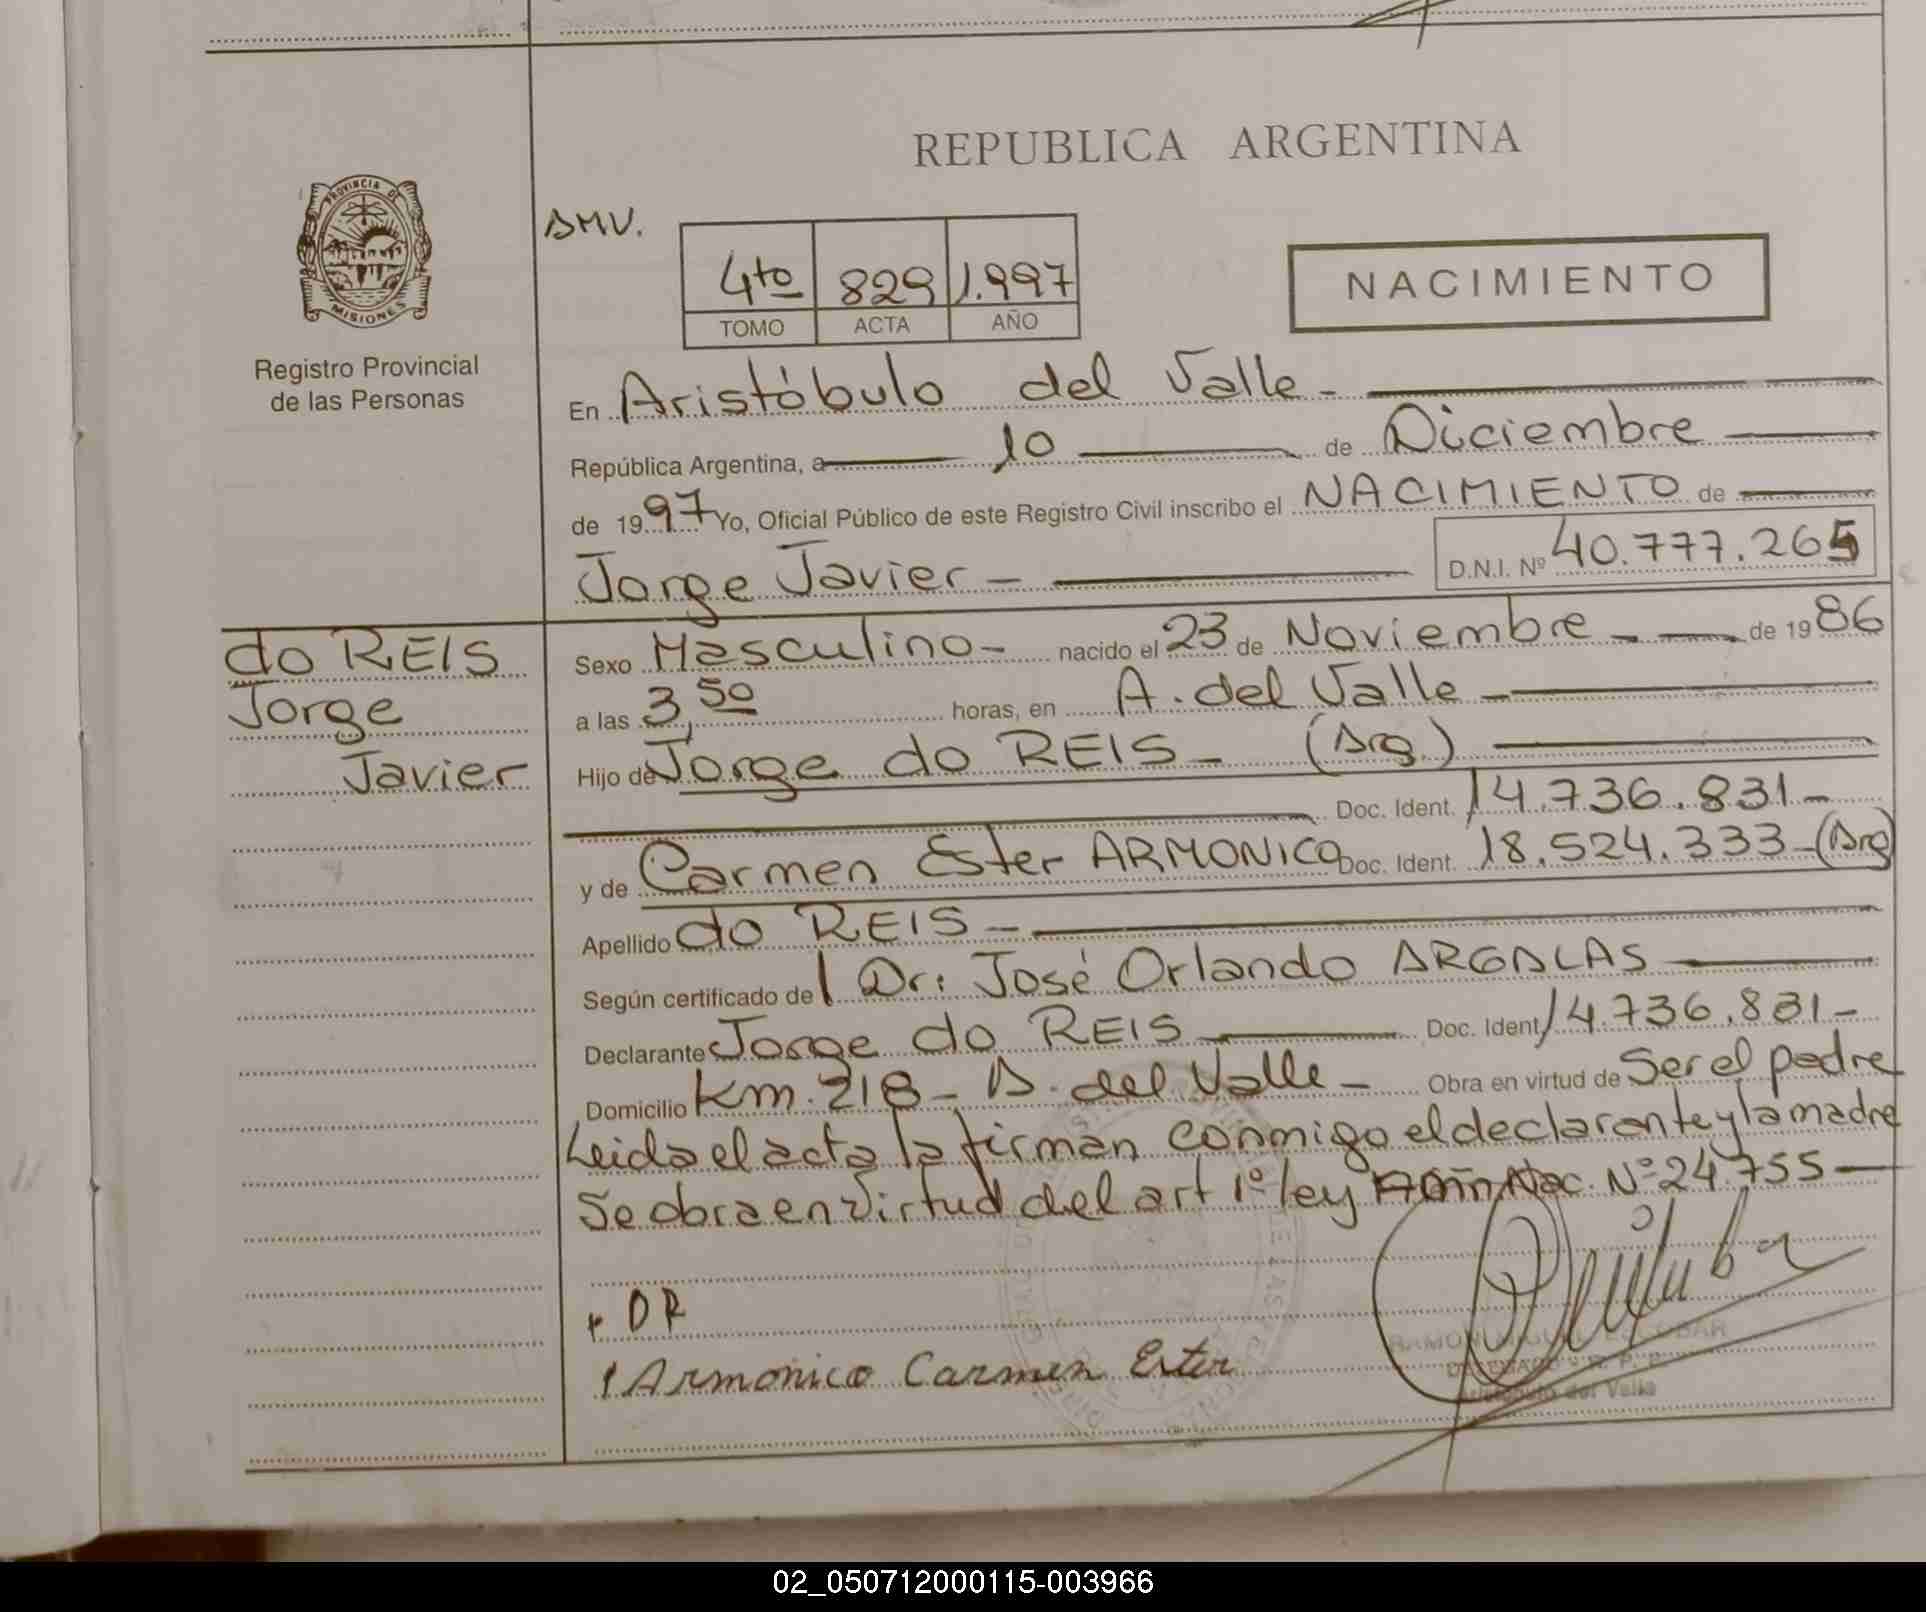 REPUBLICA ARGENTINA
PROVINCIA DE
MISIONES
Registro Provincial
de las Personas
AMV.
4to 829 1.997
TOMO ACTA AÑO
NACIMIENTO
En Aristóbulo del Valle -
República Argentina, a 10 de Diciembre
de 1997 Yo, Oficial Público de este Registro Civil inscribo el NACIMIENTO de
Jorge Javier - D.N.I. Nº 40.777.265
do REIS
Jorge
Javier
Sexo Masculino - nacido el 23 de Noviembre - de 1986
a las 3,50 horas, en A. del Valle -
Hijo de Jorge do REIS - (Arg.)
Doc. Ident. 14.736.831 -
y de Carmen Ester ARMONICO Doc. Ident. 18.524.333 - (Arg)
Apellido do REIS -
Según certificado de Dr: José Orlando ARGALAS
Declarante Jorge do REIS Doc. Ident. 14.736.831 -
Domicilio Km. 218 - A. del Valle - Obra en virtud de Ser el padre
Leida el acta la firman conmigo el declarante y la madre
Se obra en virtud del art 1º ley Nac. Nº 24.755 -
DR
Armonico Carmen Ester
RAMON MIGUEL ESCOBAR
DELEGADO R. P. P.
Aristóbulo del Valle
02_050712000115-003966